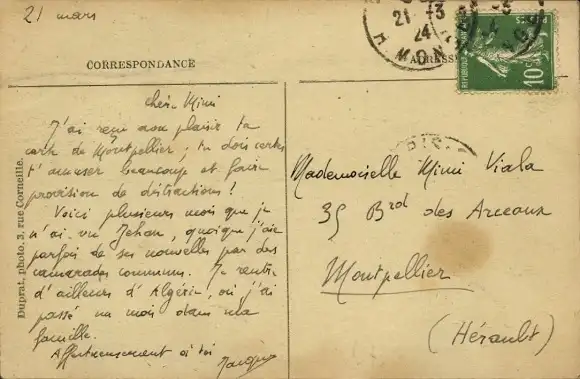 21 mars
21 -3
24
CORRESPONDANCE
ADRESSE
REPUBLIQUE
POSTES
10
Chère Mimi
J'ai reçu avec plaisir ta
carte de Montpellier ; tu dois certes
t'amuser beaucoup et faire
provision de distractions !
Voici plusieurs mois que je
n'ai vu Jehan, quoique j'aie
parfois de ses nouvelles par des
camarades communs. Je rentre
d'ailleurs d'Algérie, où j'ai
passé un mois dans ma
famille.
Affectueusement à toi
Jacques
Duprat, photo. 3, rue Corneille.
Mademoiselle Mimi Viala
35 Brd des Arceaux
Montpellier
(Hérault)